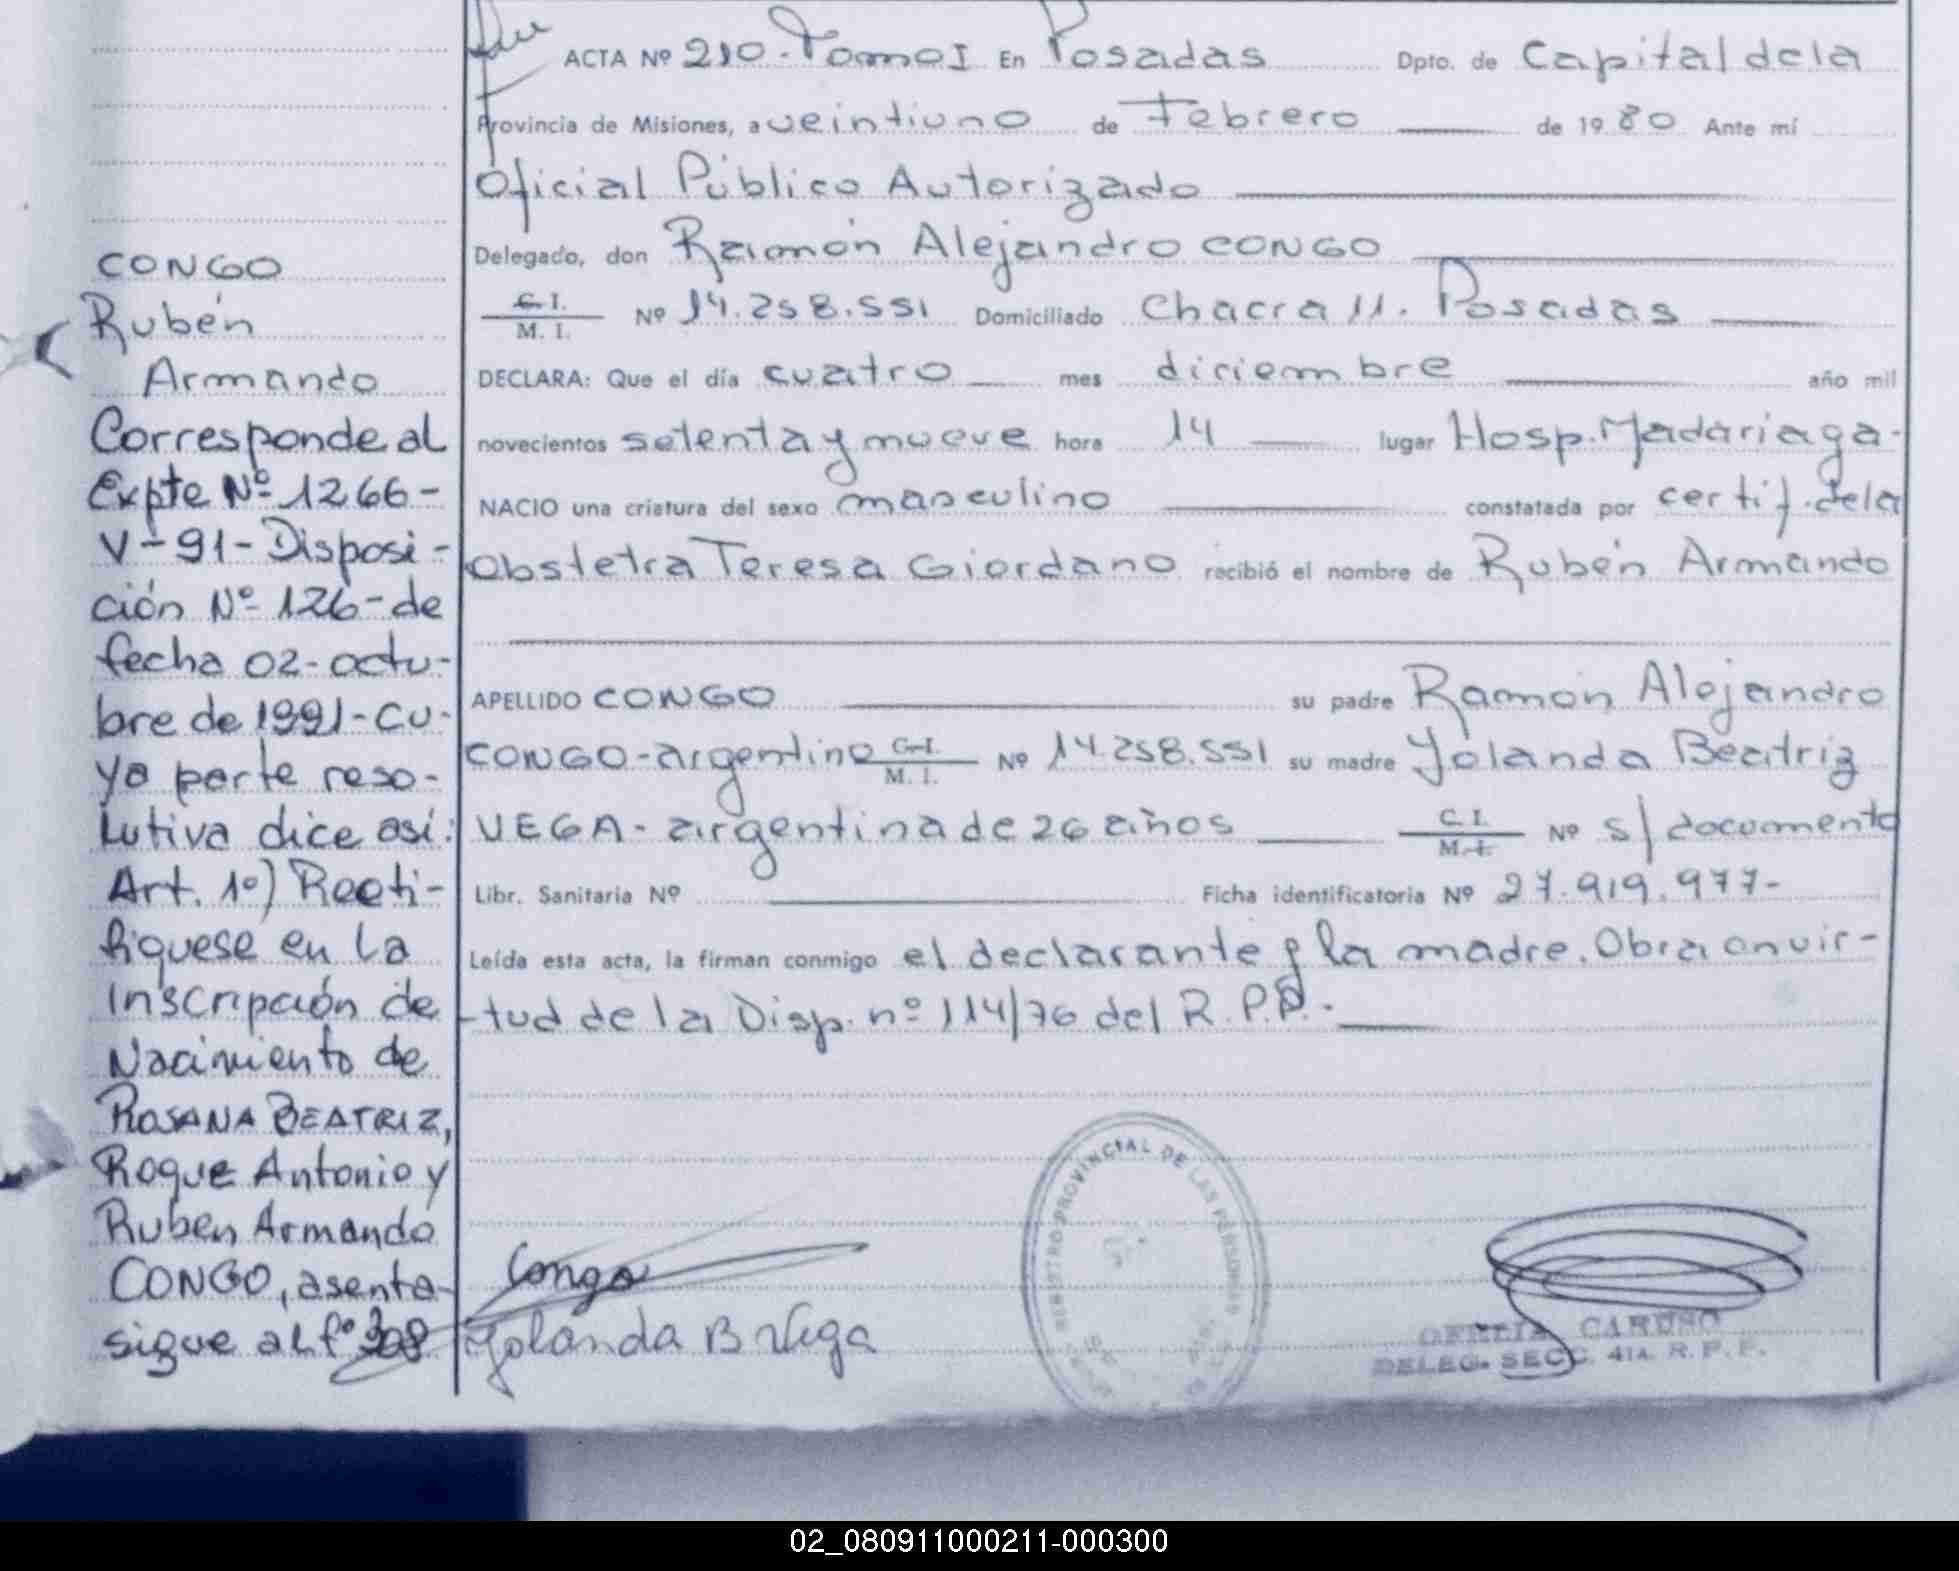 CONGO
Rubén
Armando
Corresponde al
Expte Nº 1266-
V-91-Disposi-
ción Nº 126-de
fecha 02-octu-
bre de 1991-cu-
ya parte reso-
lutiva dice así:
Art. 1º) Recti-
fiquese en la
Inscripción de
Nacimiento de
ROSANA BEATRIZ,
Roque Antonio y
Ruben Armando
CONGO, asenta-
sigue al fº 308
ACTA Nº 210-Tomo I En Posadas Dpto. de Capital de la
Provincia de Misiones, a veintiuno de Febrero de 1980 Ante mí
Oficial Público Autorizado
Delegado, don Ramón Alejandro CONGO
C.I.
M. I. Nº 14.258.551 Domiciliado Chacra 11. Posadas
DECLARA: Que el día cuatro mes diciembre año mil
novecientos setenta y nueve hora 14 lugar Hosp. Madariaga-
NACIO una criatura del sexo masculino constatada por certif. de la
Obstetra Teresa Giordano recibió el nombre de Rubén Armando
APELLIDO CONGO su padre Ramón Alejandro
CONGO-argentino C.I.
M. I. Nº 14.258.551 su madre Yolanda Beatriz
VEGA-argentina de 26 años C. I.
M. I. Nº s/documento
Libr. Sanitaria Nº Ficha identificatoria Nº 27.919.977-
Leída esta acta, la firman conmigo el declarante y la madre. Obra en vir-
tud de la Disp. nº 114/76 del R.P.P.-
REGISTRO PROVINCIAL DE LAS PERSONAS
Congo
Yolanda B Vega
OFELIA CARUSO
DELEG. SECC. 4TA. R. P. P.
02_080911000211-000300